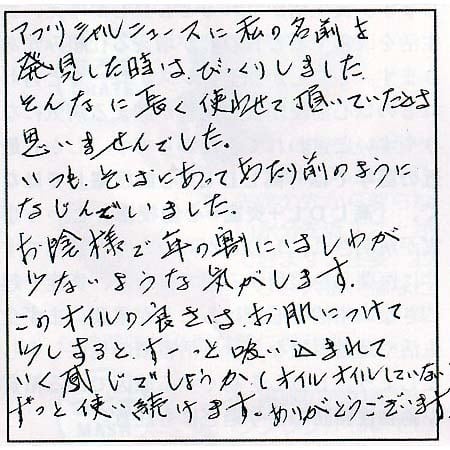 アフリシャルニュースに私の名前を
発見した時は、びっくりしました。
そんなに長く使わせて頂いていたとは
思いませんでした。
いつも、そばにあってあたり前のように
なじんでいました。
お陰様で年の割にはしわが
少ないような気がします。
このオイルの良さは、お肌につけて
少しするとすーっと吸い込まれて
いく感じでしょうか。(オイルオイルしていない)
ずっと使い続けます。ありがとうございます。